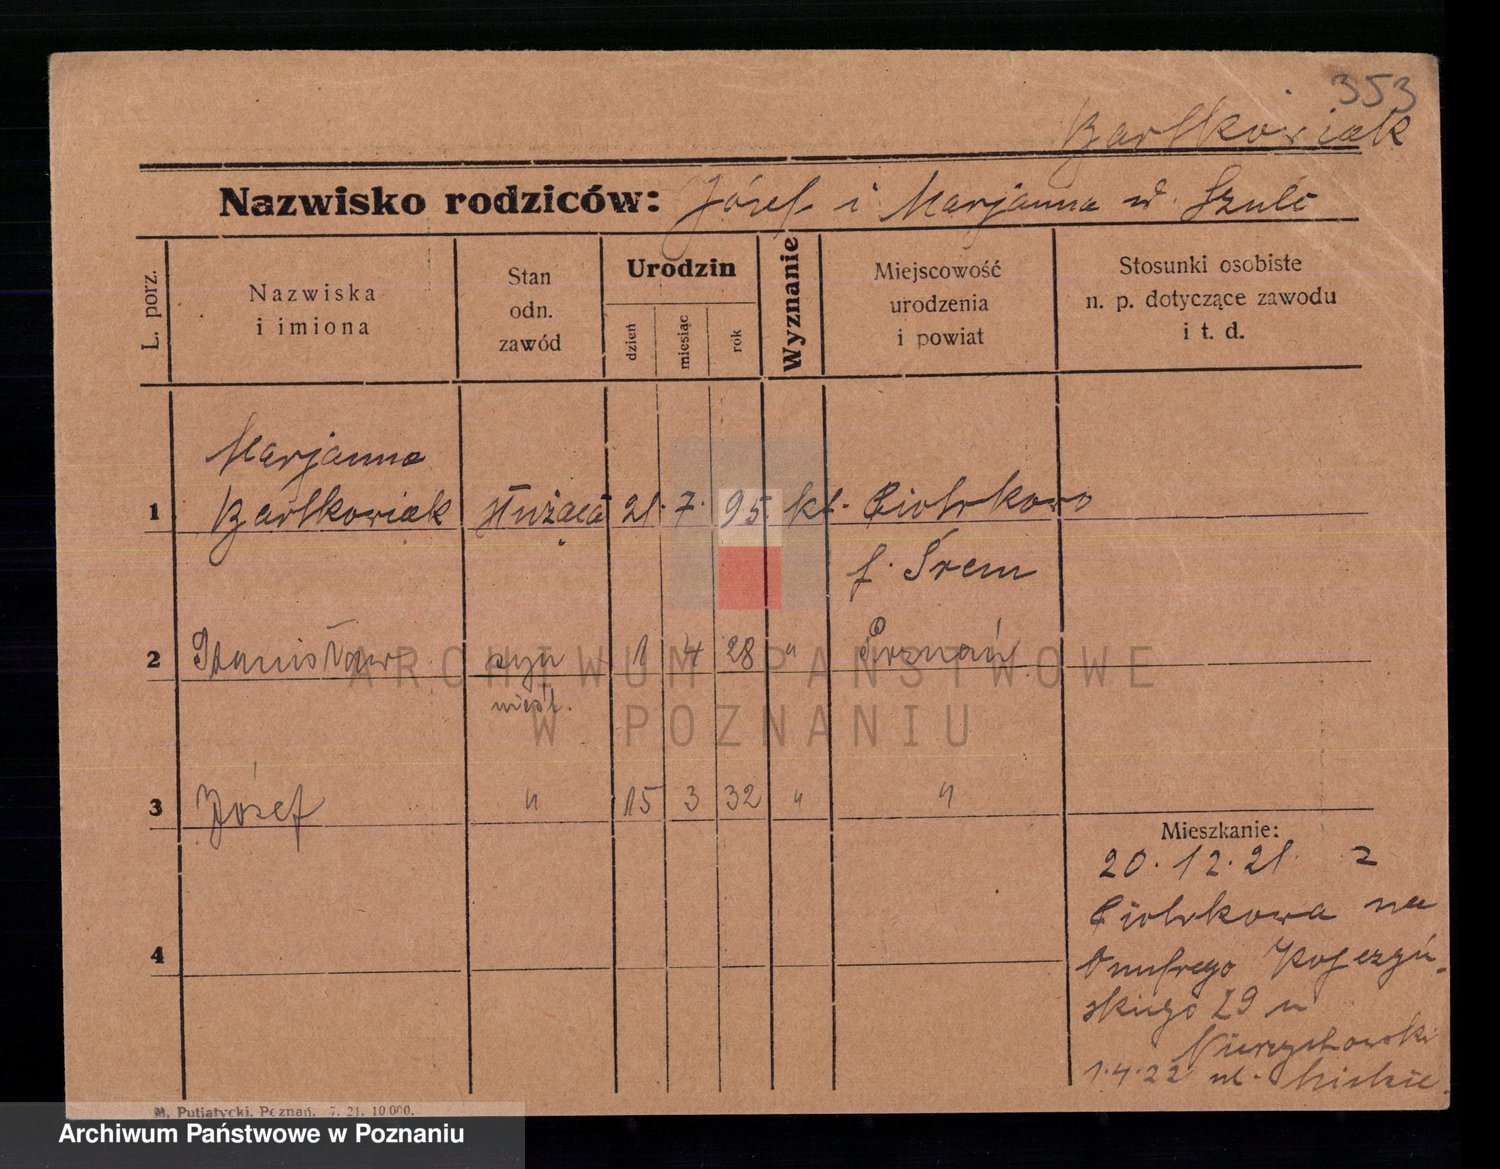 353
Bartkowiak
Nazwisko rodziców: Józef i Marjanna Szulc
L. porz.
Nazwiska
i imiona
Stan
odn.
zawód
Urodzin
dzień
miesiąc
rok
Wyznanie
Miejscowość
urodzenia
i powiat
Stosunki osobiste
n. p. dotyczące zawodu
i t. d.
Marjanna
1 Bartkowiak służąca 21. 7. 95. kt. Ciołkowo
Śrem
2 Stanisław syn 1 4 28 " Poznań
nieśl.
3 Józef " 15 3 32 " "
Mieszkanie:
20. 12. 21. z
Ciołkowa na
Onufrego Kopczyń-
skiego 29 u
Nierychowski
1.4.22 ul.
4
ARCHIWUM PAŃSTWOWE
W POZNANIU
M. Putiatycki, Poznań. 7. 21. 10 000.
Archiwum Państwowe w Poznaniu